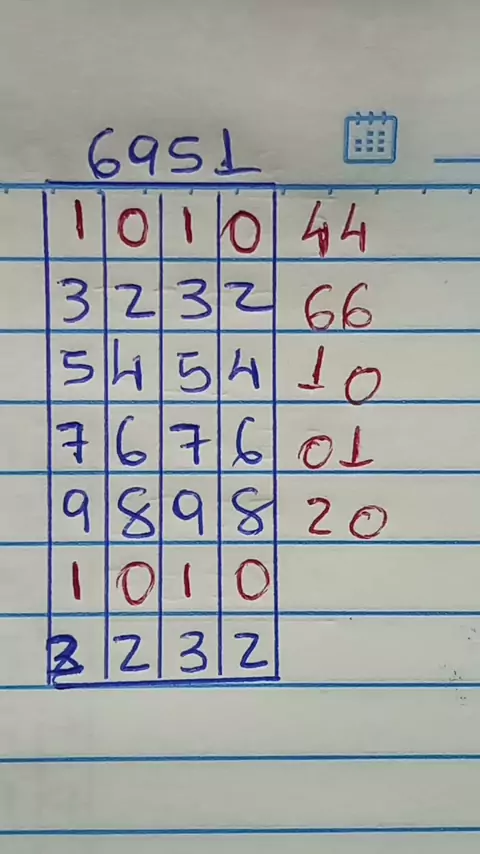 6951
1 0 1 0 44
3 2 3 2 66
5 4 5 4 10
7 6 7 6 01
9 8 9 8 20
1 0 1 0
3 2 3 2